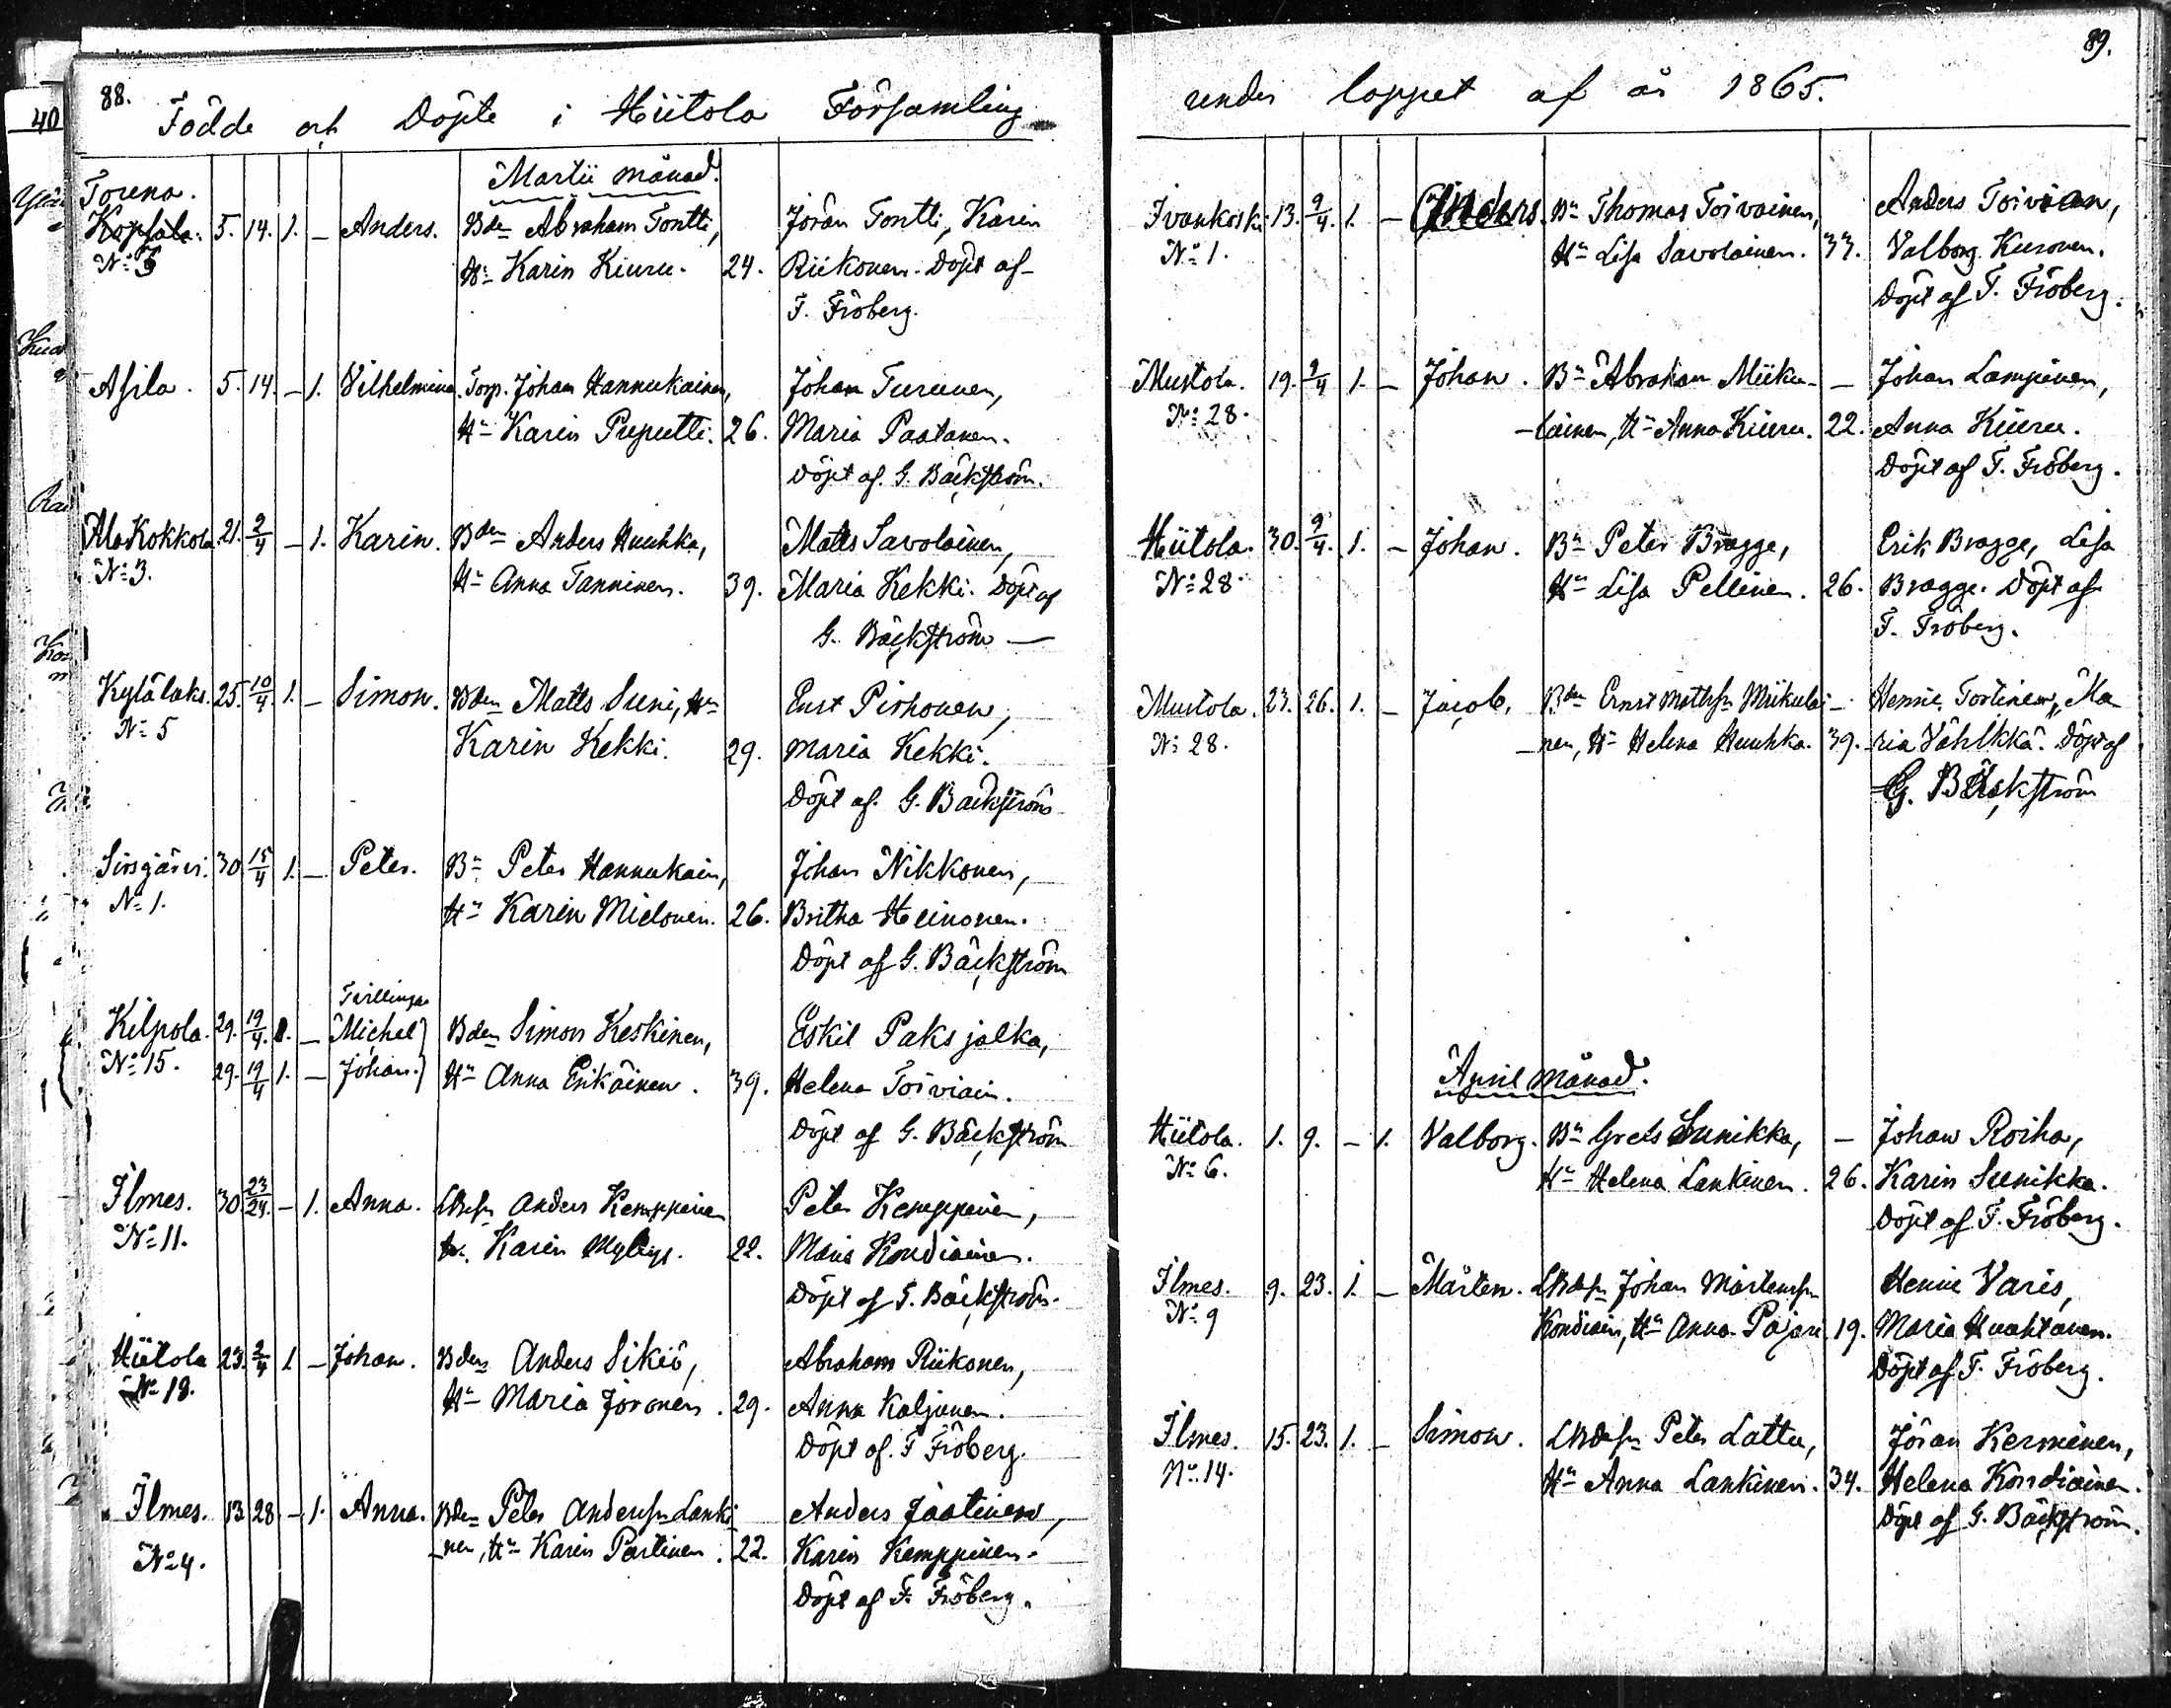 88.
Födde och Döpte i Hiitola Församling
Martii månad.
Torena.
5. 14. 1. – Anders. Bden Abraham Tontti, Jöran Tontti, Karin
Hu Karin Kiuru. 24. Riikonen. Döpt af
F. Fröberg.
Asila. 5. 14. – 1. Vilhelmina. Torp. Johan Hannukainen, Johan Turunen,
Hu Karin Puputti. 26. Maria Paatanen.
Döpt af. G. Bäckström.
Ala Kokkola 21. 2/4 – 1. Karin. Bden Anders Huuhka, Matts Savolainen,
No 3. Hu Anna Tanninen. 39. Maria Kekki. Döpt af
G. Bäckström –
Kylälaks. 25. 10/4. 1. – Simon. Bden Matts Suni, Hu Pirhonen,
No 5 Karin Kekki. 29. Maria Kekki.
Döpt af. G. Bäckström
30 15/4 1. – Peter. Bn Peter Hannukain, Johan Nikkonen,
No 1. Hu Karin Mielonen. 26. Britha Heinonen.
Döpt af G. Bäckström
Tvillingar
Kilpola. 29. 19/4. 1. – Michel} Bden Simon Keskinen, Eskil Paksjalka,
No 15. 29. 19/4 1. – Johan.} Hu Anna Erikäinen. 39. Helena Toiviain.
Döpt af G. Bäckström
Ilmes. 30 23/24. – 1. Anna. Anders Kemppinen Peter Kemppinen,
No 11. Karin Myllys. 22. Maria Kondiainen.
Döpt af G. Bäckström.
Hiitola 23. 2/4 1 – Johan. Bden Anders Sikiö, Abraham Riikonen,
No 18. Hu Maria Joronen. 29. Anna Kaljunen.
Döpt af. F Fröberg.
Ilmes. 13 28 – 1. Anna. Bden Peter Anderssn Lanki Anders Jaatinen,
No 4. –nen, Hu Karin Partinen. 22. Karin Kemppinen.
Döpt af F. Fröberg.
89.
under loppet af år 1865.
Ivankoski 13. 9/4. 1. – Anders. Bn Thomas Toivainen, Anders Toivian,
No 1. Hu Lisa Savolainen. 33. Valborg Kuronen.
Döpt af F. Fröberg.
Mustola. 19. 9/4 1. – Johan. Bn Abraham Miiku– – Johan Lampinen,
No 28. –lainen, Hu Anna Kiuru. 22. Anna Kiuru.
Döpt af F. Fröberg.
Hiitola. 30. 9/4. 1. – Johan. Bn Peter Bragge, Erik Bragge, Lisa
No 28 Hu Lisa Pellinen. 26. Bragge. Döpt af
F. Fröberg.
Mustola. 23. 26. 1. – Jacob. Bden Ernst Mattssn Miikulai– Henric Tortinen, Ma
No 28. –nen, Hu Helena Huuhka. 39. ria Vähikkä. Döpt af
G. Bäckström
April månad.
Hiitola. 1. 9. – 1. Valborg. Bn Grels Sunikka, – Johan Roiha,
No 6. Hu Helena Lankinen. 26. Karin Sunikka.
Döpt af F. Fröberg.
Ilmes. 9. 23. 1. – Mårten. Johan Mårtenssn Henric Varis,
No 9 Kondiain, Hu Anna Pajari 19. Maria Huahtanen.
Döpt af F. Fröberg.
Ilmes. 15. 23. 1. – Simon. Peter Lattu, Jöran Kerminen,
No 14. Hu Anna Lankinen. 34. Helena Kondiainen.
Döpt af G. Bäckström.